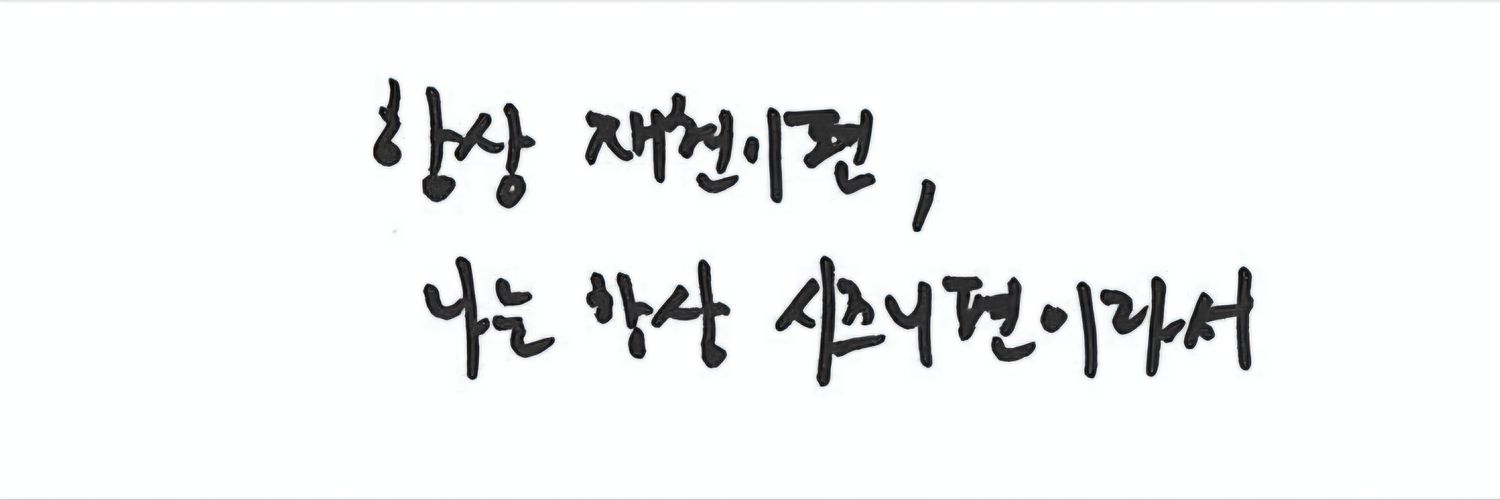 항상 재현이편,
나는 항상 시즈니편이라서